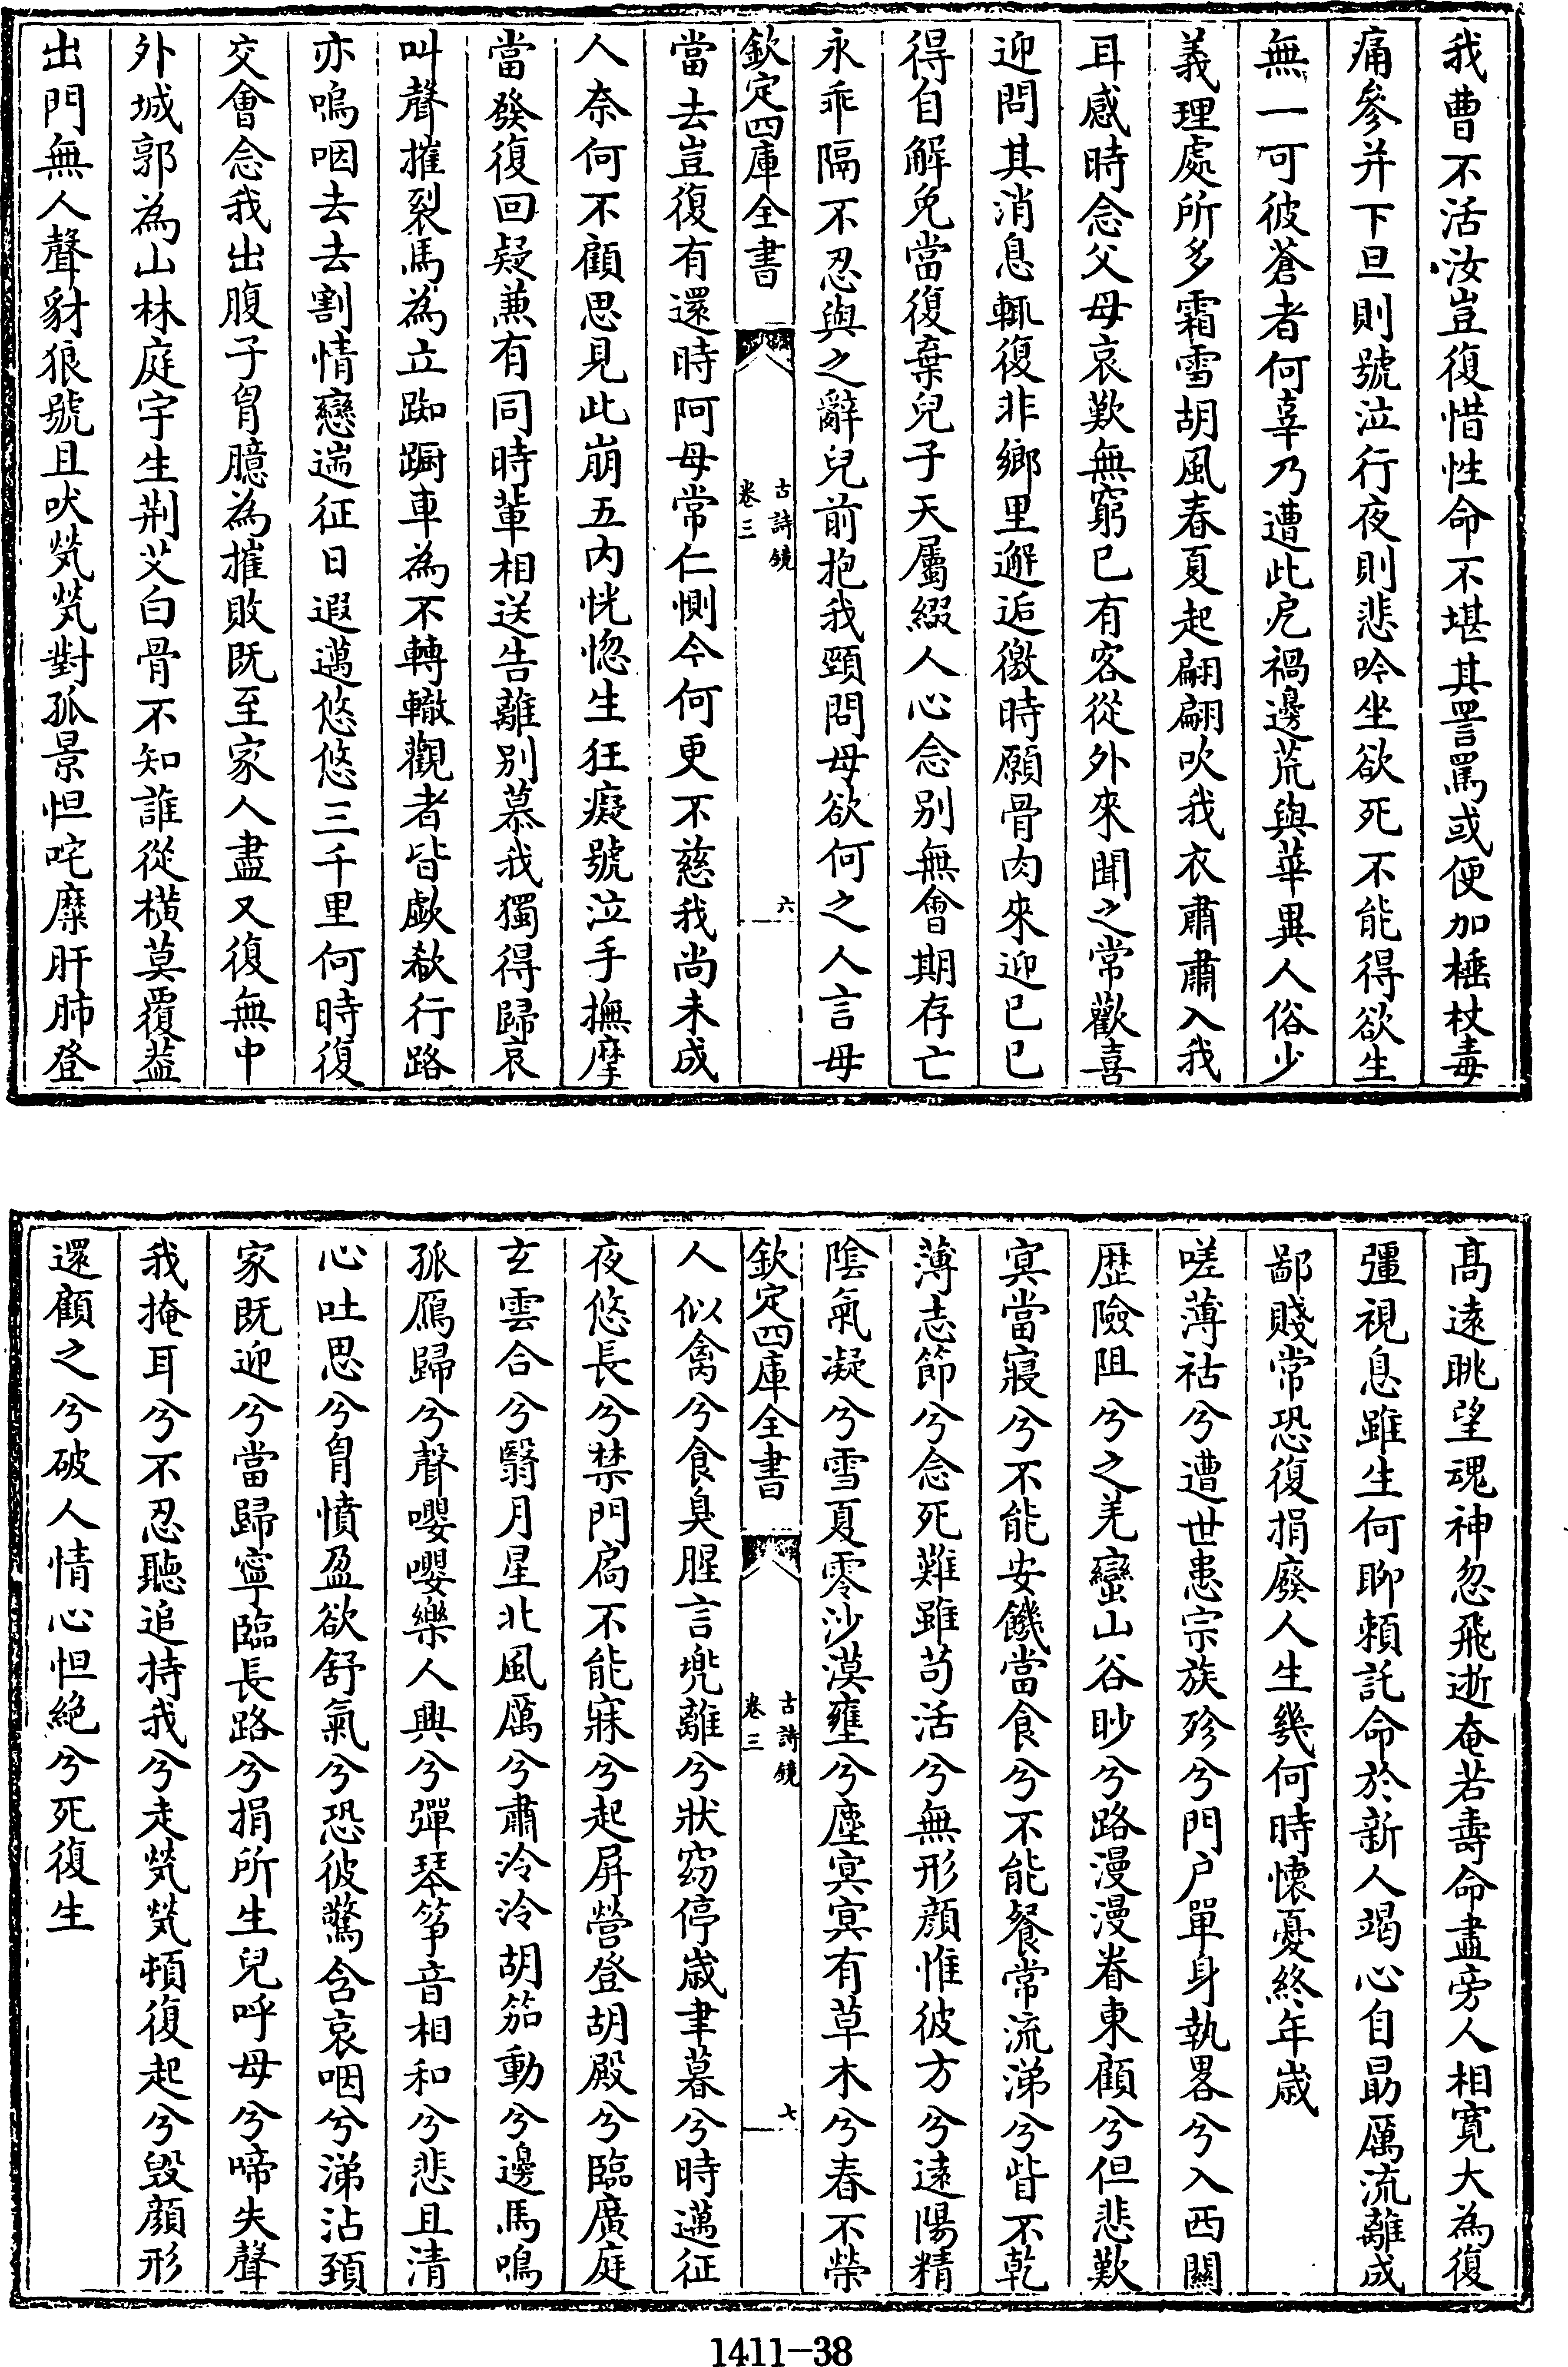 我曹不活汝豈復惜性命不堪其詈罵或便加棰杖毒
痛參并下旦則號泣行夜則悲吟坐欲死不能得欲生
無一可彼蒼者何辜乃遭此戹禍邊荒與華異人俗少
義理處所多霜雪胡風春夏起翩翩吹我衣肅肅入我
耳感時念父母哀歎無窮已有客從外來聞之常歡喜
迎問其消息輒復非鄉里邂逅徼時願骨肉來迎己己
得自解免當復棄兒子天屬綴人心念別無會期存亡
永乖隔不忍與之辭兒前抱我頸問母欲何之人言母
欽定四庫全書
古詩鏡
卷三
六
當去豈復有還時阿母常仁惻今何更不慈我尚未成
人奈何不顧思見此崩五內恍惚生狂癡號泣手撫摩
當發復回疑兼有同時輩相送告離別慕我獨得歸哀
叫聲摧裂馬為立踟躕車為不轉轍觀者皆歔欷行路
亦嗚咽去去割情戀遄征日遐邁悠悠三千里何時復
交會念我出腹子胷臆為摧敗既至家人盡又復無中
外城郭為山林庭宇生荆艾白骨不知誰從橫莫覆葢
出門無人聲豺狼號且吠煢煢對孤景怛咤糜肝肺登
髙遠眺望魂神忽飛逝奄若壽命盡旁人相寛大為復
彊視息雖生何聊賴託命於新人竭心自勗厲流離成
鄙賤常恐復捐廢人生幾何時懷憂終年歲
嗟薄祜兮遭世患宗族殄兮門户單身執畧兮入西關
歷險阻兮之羌蠻山谷眇兮路漫漫眷東顧兮但悲歎
冥當寢兮不能安饑當食兮不能餐常流涕兮眥不乾
薄志節兮念死難雖苟活兮無形顔惟彼方兮遠陽精
陰氣凝兮雪夏零沙漠壅兮塵冥冥有草木兮春不榮
欽定四庫全書
古詩鏡
卷三
七
人似禽兮食臭腥言兠離兮狀窈停歲聿暮兮時邁征
夜悠長兮禁門扃不能寐兮起屏營登胡殿兮臨廣庭
玄雲合兮翳月星北風厲兮肅泠泠胡笳動兮邊馬鳴
孤鴈歸兮聲嚶嚶樂人興兮彈琴筝音相和兮悲且清
心吐思兮胷憤盈欲舒氣兮恐彼驚含哀咽兮涕沾頚
家既迎兮當歸寧臨長路兮捐所生兒呼母兮啼失聲
我掩耳兮不忍聽追持我兮走煢煢頓復起兮毀顔形
還顧之兮破人情心怛絶兮死復生
1411-38